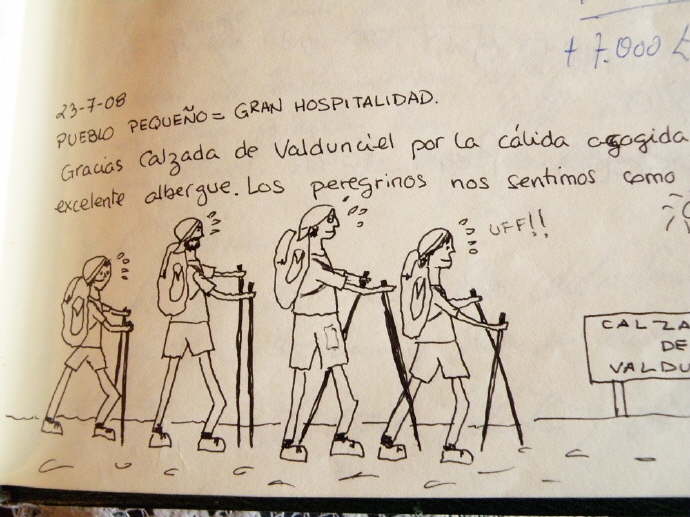 + 7.000
23-7-08
PUEBLO PEQUEÑO = GRAN HOSPITALIDAD.
Gracias Calzada de Valdunciel por la cálida acogida
excelente albergue. Los peregrinos nos sentimos como
UFF!!
CALZA
DE
VALDU